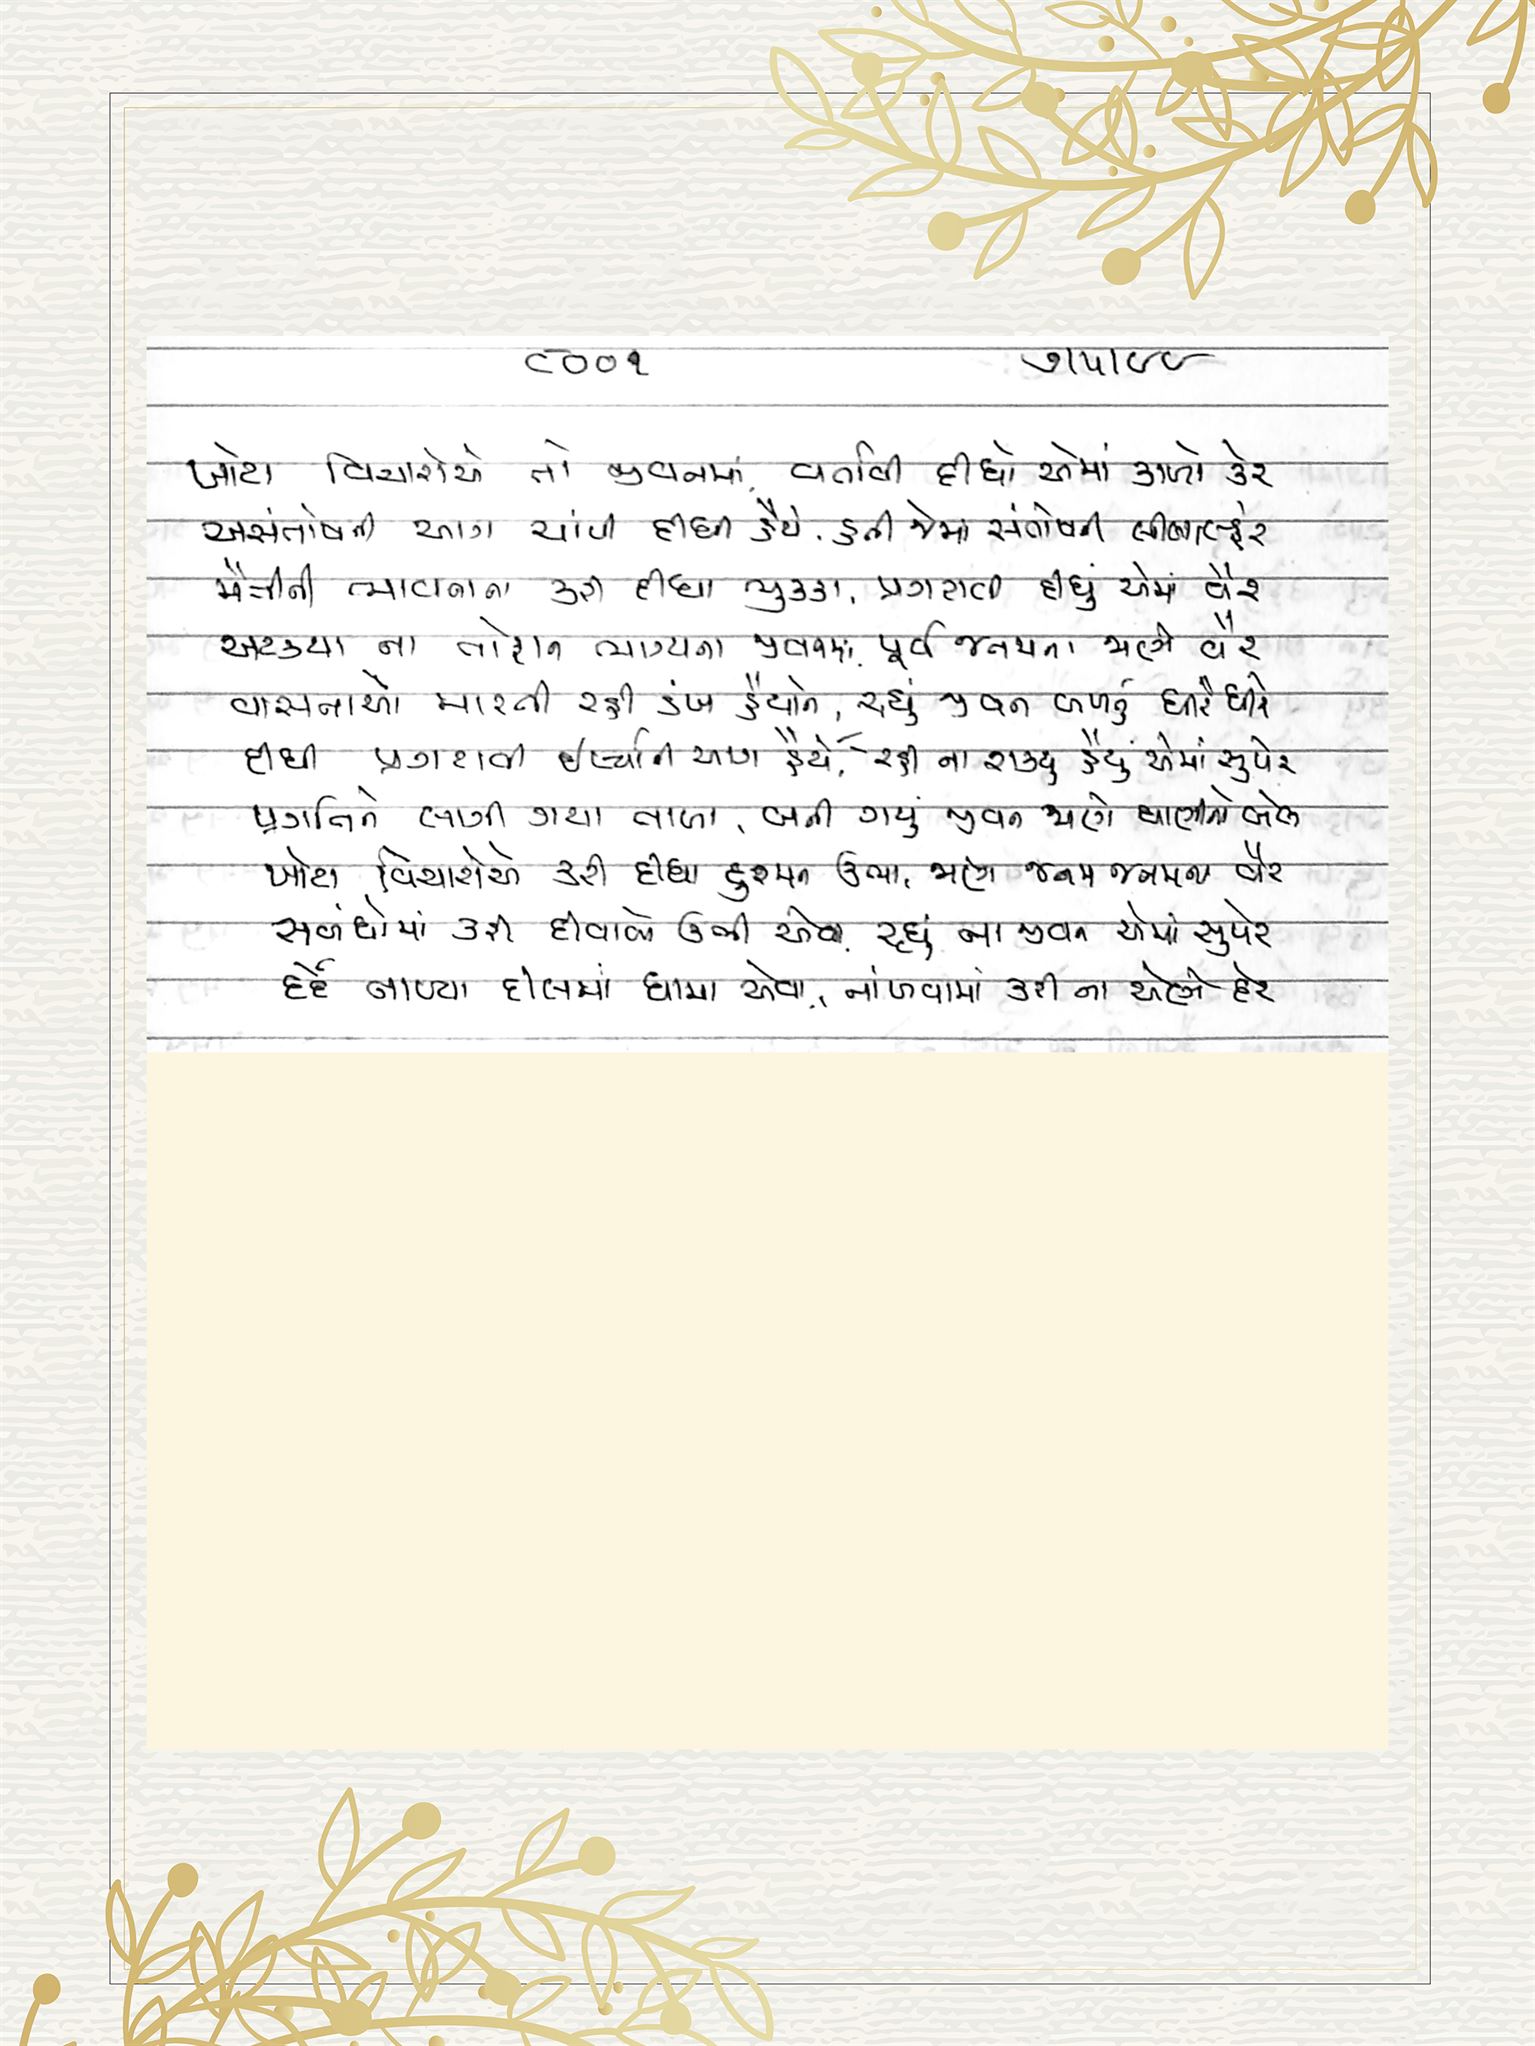 ૮૦૦૧ ૭।૫।૯૯
ખોટા વિચારોએ તો જીવનમાં, વર્તાવી દીધો એમાં કાળો કેર
અસંતોષની આગ ચાંપી દીધી હૈયે, હતી જેમાં સંતોષની
મૈત્રીની ભાવનાના કરી દીધા ભુક્કા, પ્રગટાવી દીધું એમાં વૈર
અટક્યા ના તોફાન ભાગ્યના જીવનમાં, પૂર્વ જનમના જાણે વૈર
વાસનાઓ મારતી રહી ડંખ હૈયાને, રહ્યું જીવન બળતું ધીરે ધીરે
દીધી પ્રગટાવી ઈર્ષ્યાની આગ હૈયે, રહી ના શક્યું હૈયું એમાં સુપેરે
પ્રગતિને લાગી ગયા તાળા, બની ગયું જીવન જાણે ઘાણીનો બેલ
ખોટા વિચારોએ કરી દીધા દુશ્મન ઉભા, જાણે જનમ જનમના વૈર
સબંધોમાં કરી દીવાલો ઉભી એવી, રહ્યું ના જીવન એમાં સુપેરે
દર્દે આપ્યા દિલમાં ઘામા એવા, કરી ના એણે દેર